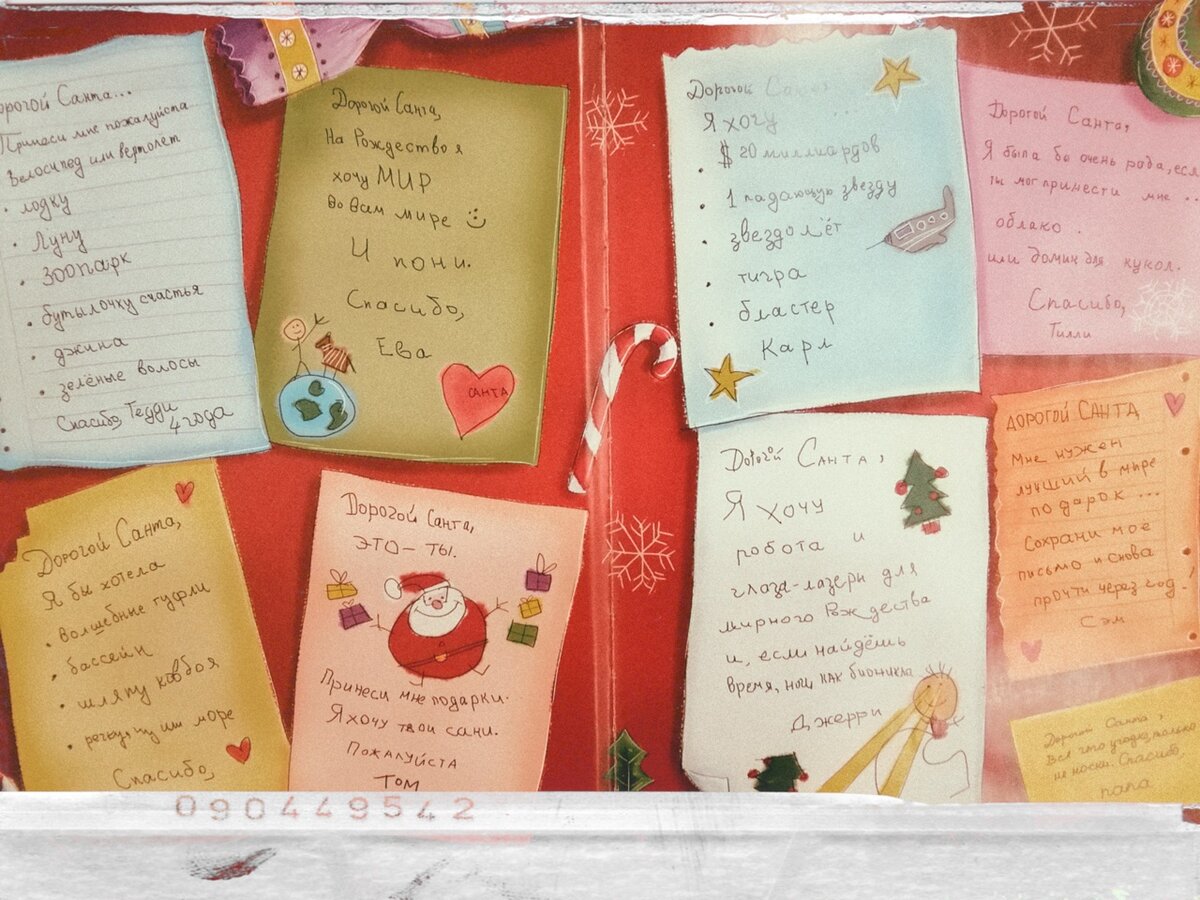 Дорогой Санта...
Принеси мне пожалуйста
Велосипед или вертолёт
• лодку
• Луну
• ЗООПАРК
• бутылочку счастья
• джина
• зелёные волосы
Спасибо, Тедди
4 года
Дорогой Санта,
На Рождество я
хочу МИР
во всём мире
И пони.
Спасибо,
Ева
САНТА
Дорогой Санта,
Я бы хотела
• волшебные туфли
• бассейн
• шляпу ковбоя
• море
Спасибо,
Дорогой Санта,
ЭТО – ТЫ.
Принеси мне подарки.
Я хочу твои сани.
Пожалуйста
ТОМ
Дорогой Санта
Я хочу ...
• $ 20 миллиардов
• 1 падающую звезду
• звездолёт
• тигра
• бластер
Карл
Дорогой Санта,
Я была бы очень рада, если
ты мог принести мне ..
облако .
или домик для кукол.
Спасибо,
Тилли
Дорогой Санта,
Я хочу
робота и
глаза-лазеры для
мирного Рождества
и, если найдёшь
время, ноги, как бионикла
Джерри
ДОРОГОЙ САНТА
Мне нужен
лучший в мире
подарок ...
Сохрани мое
письмо и снова
прочти через год!
Сэм
Дорогой Санта,
Всё что угодно, только
не носки. Спасибо,
папа
090449542